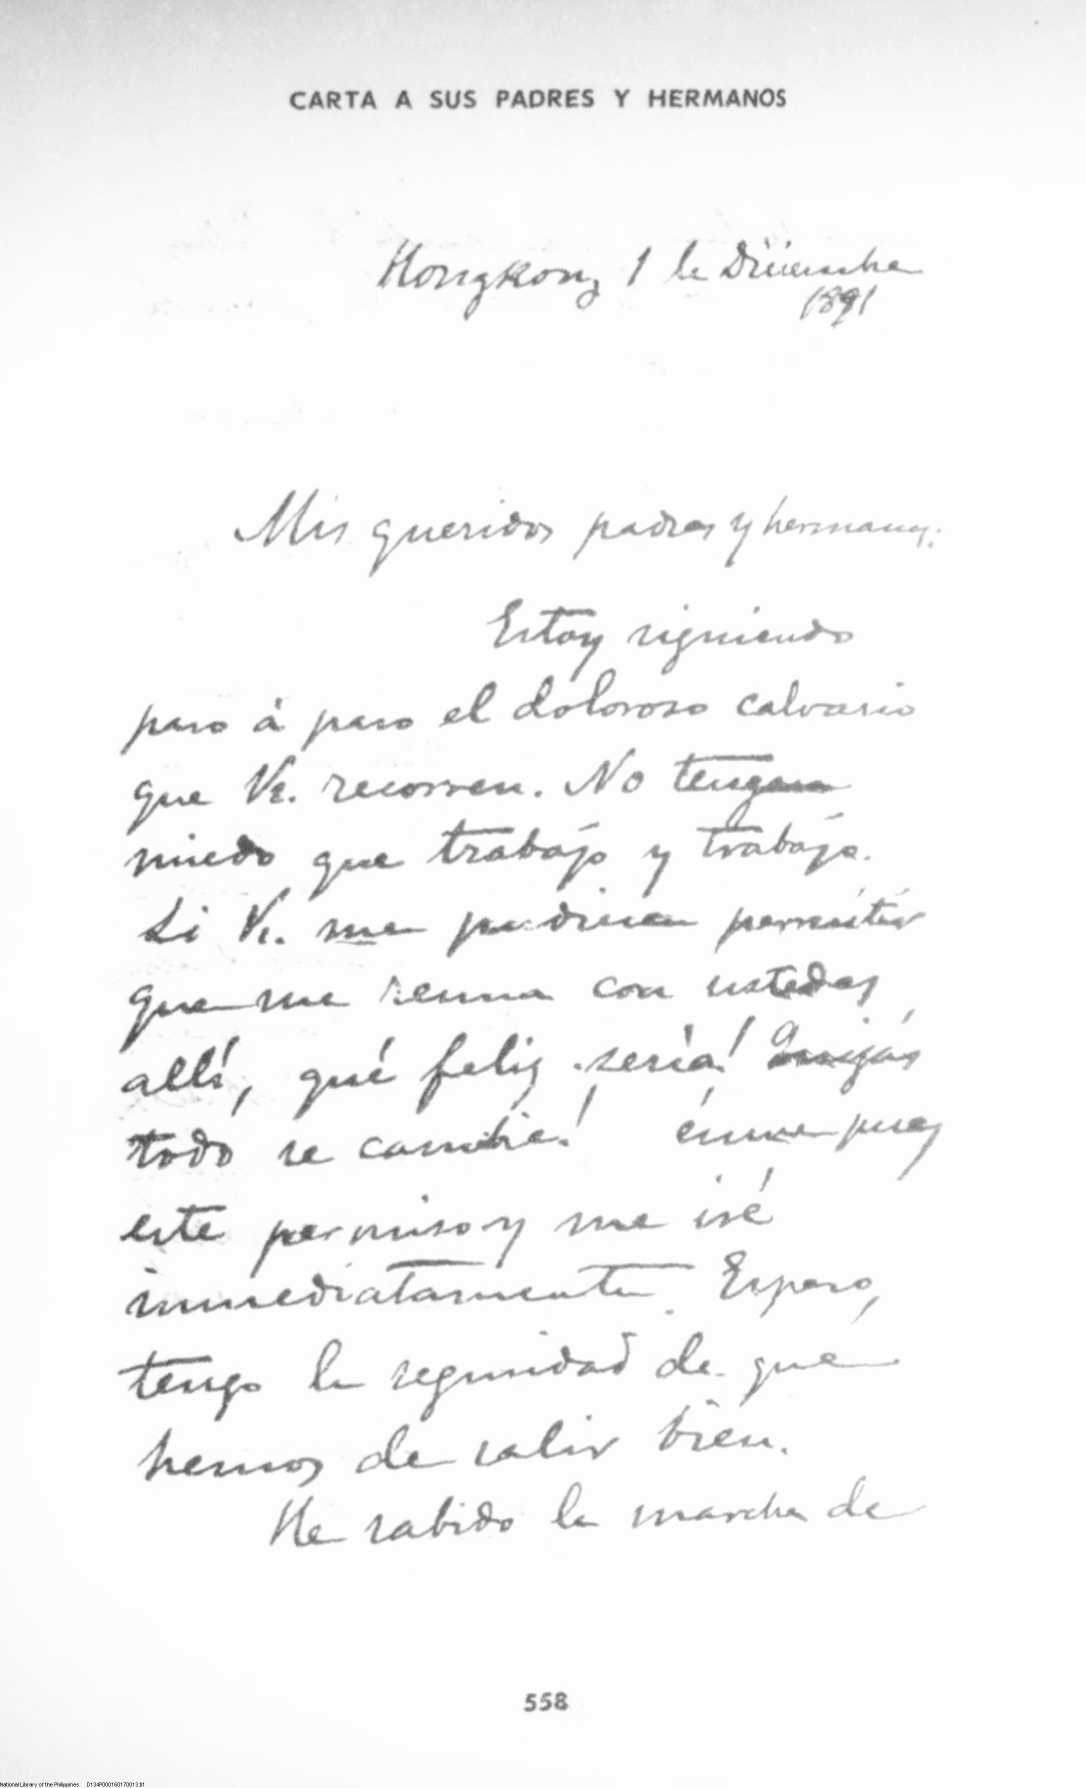 CARTA A SUS PADRES Y HERMANOS
Hongkong 1 de Diciembre
1891
Mis queridos padres y hermanos:
Estoy siguiendo
paso á paso el doloroso calvario
que Vs. recorren. No tengan
miedo que trabajo y trabajo.
Si Vs. me pudiesen permitir
que me reuna con ustedes
allí, qué feliz sería! Quizás
todo se cambie! pues
este permiso y me iré
inmediatamente. Espero,
tengo la seguridad de que
hemos de salir bien.
He sabido la marcha de
558
National Library of the Philippines D134P000160170013.tif